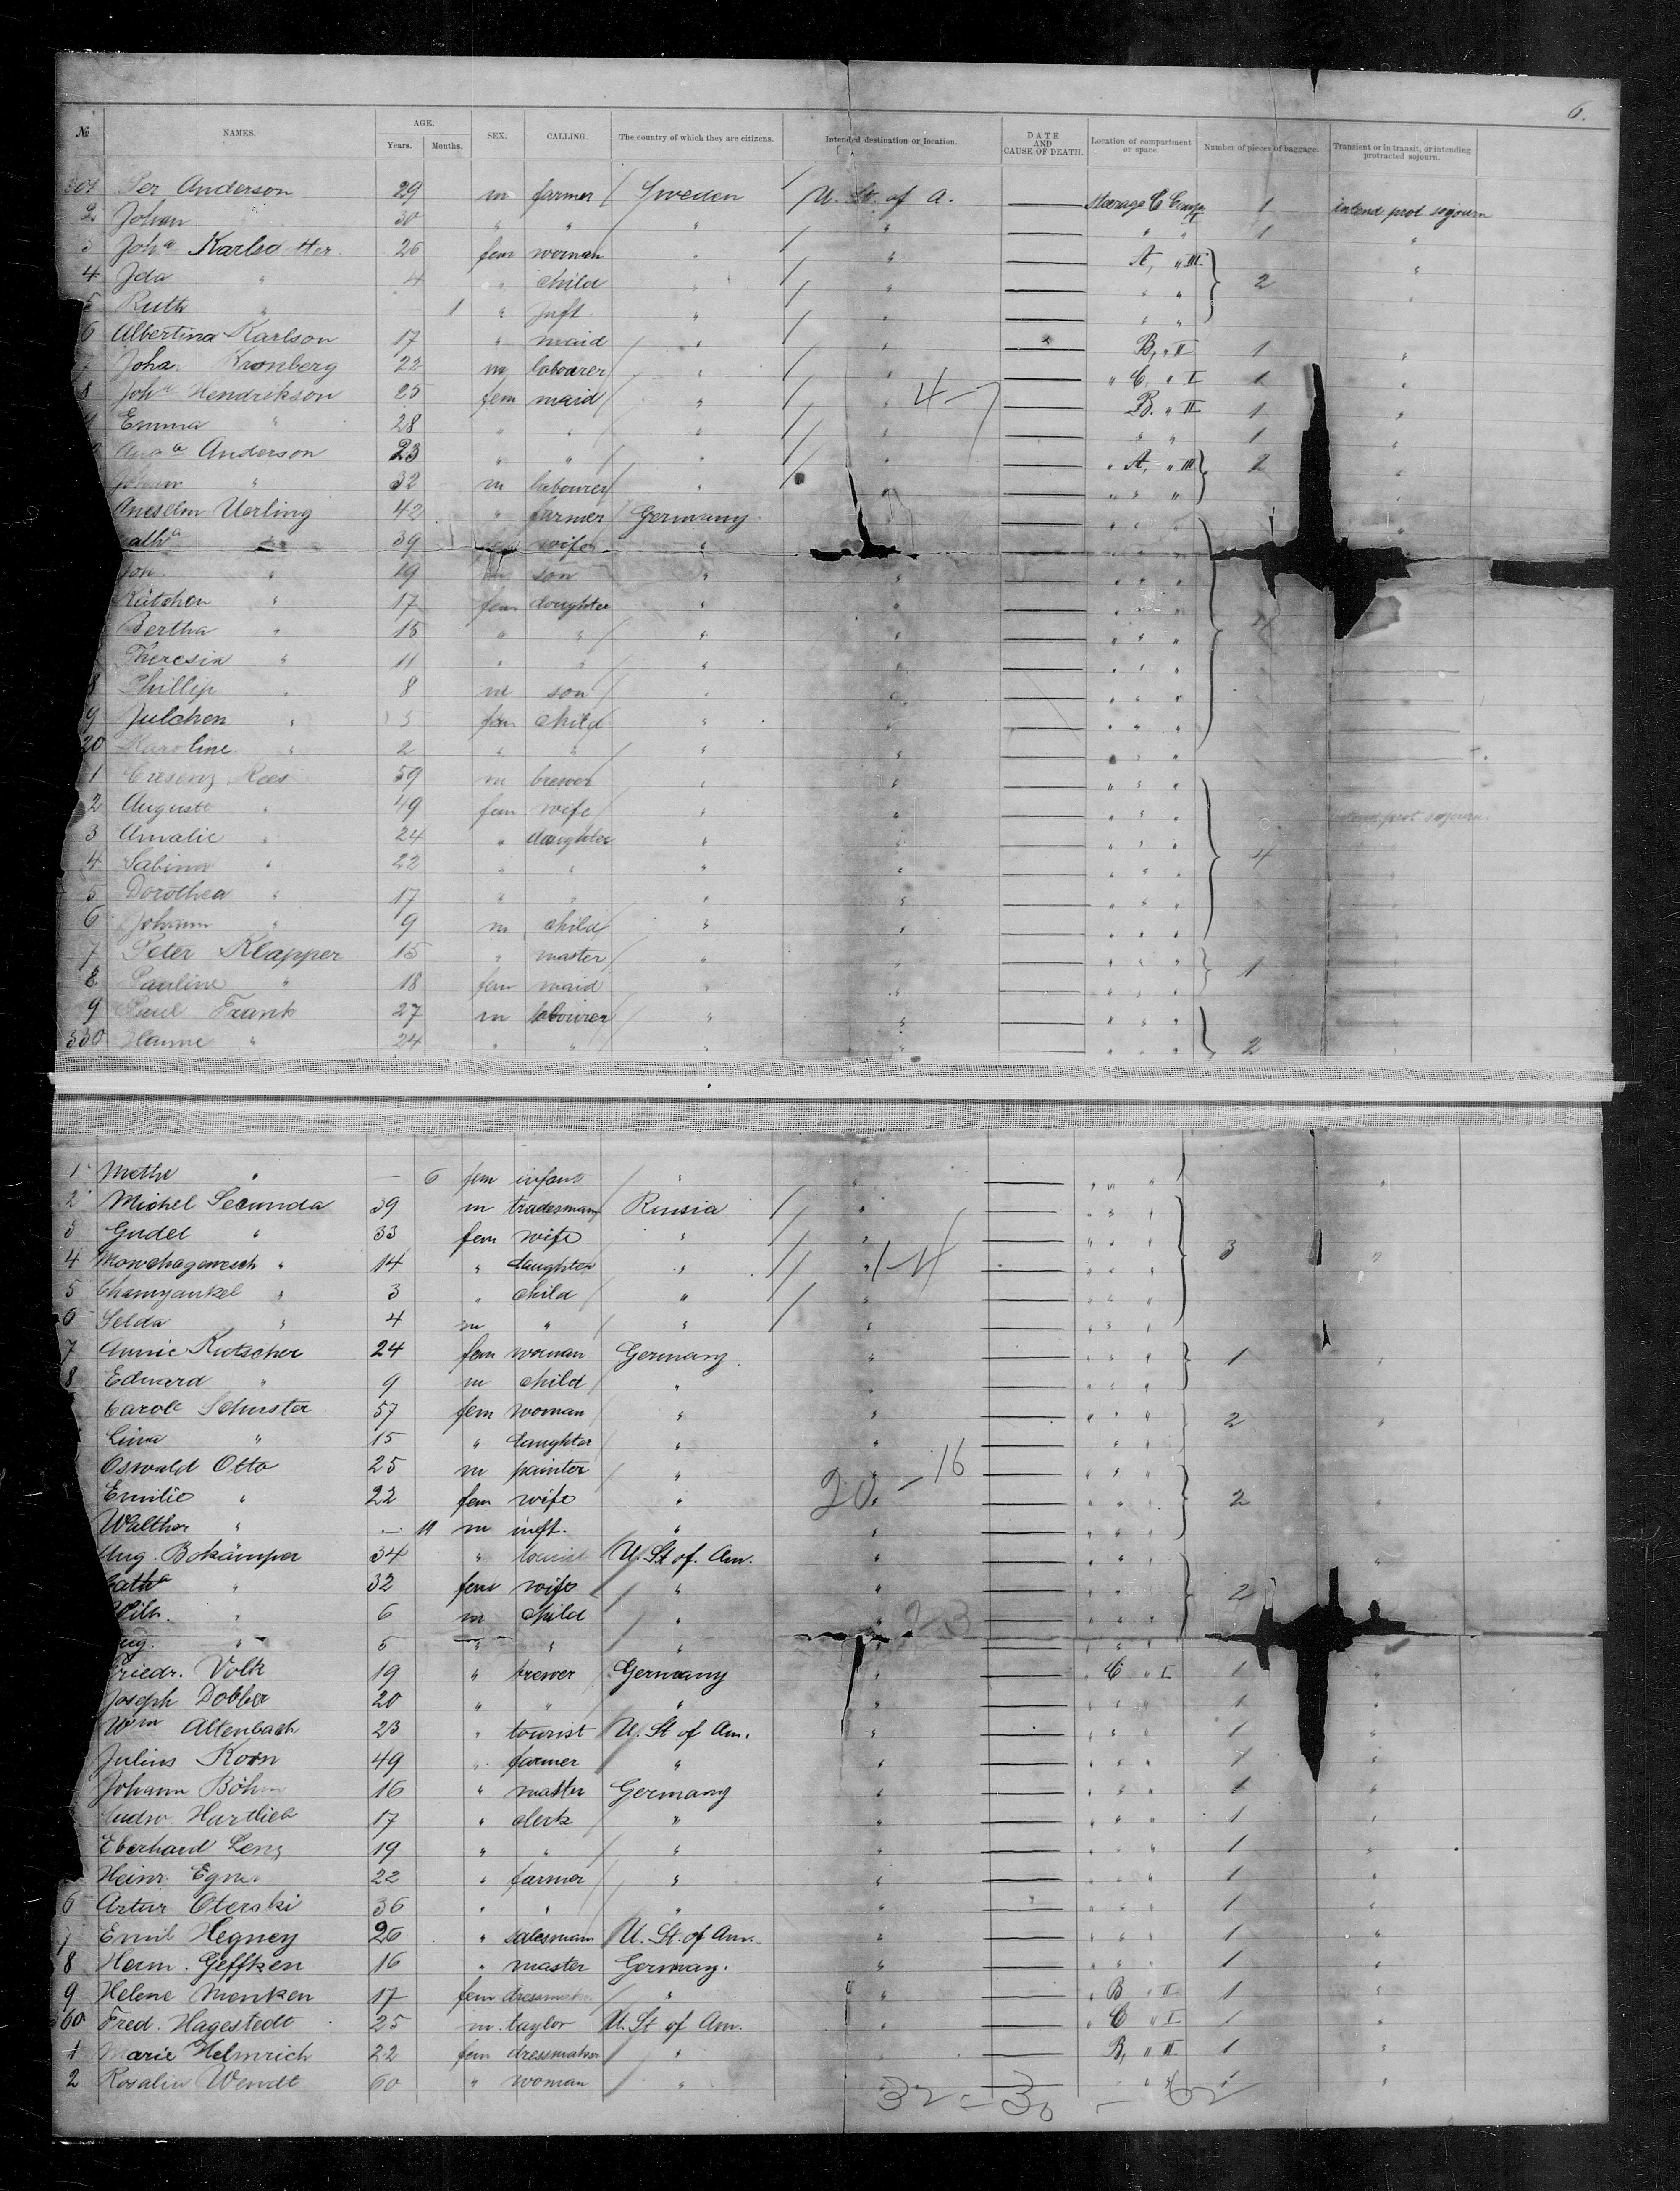 6.
№ NAMES. AGE. Years. Months. SEX. CALLING. The country of which they are citizens. Intended destination or location. DATE AND CAUSE OF DEATH. Location of compartment or space. Number of pieces of baggage. Transient or in transit, or intending protracted sojourn.
301 Per Anderson 29 m farmer Sweden U. St. of A. Steerage C Comp. I 1 intend prot sojourn
2 Johan " 30 " " " " " " 1 "
3 Joh a Karlsdotter 26 fem woman " " A, " III "
4 Ida " 4 " child " " " " 2 "
5 Ruth " 1 " Inft. " " " " "
6 Albertina Karlson 17 " maid " " B, " II 1 "
7 Johan Kronberg 22 m labourer " " " C, " I 1 "
8 Joh a Hendrikson 25 fem maid " " 4-7 B. " II 1 "
9 Emma " 28 " " " " " " 1 "
Anderson 23 " " " " " A, " III 2 "
Johann " 32 m labourer " " " " " "
Anselm Uerling 42 " farmer Germany " " " " "
ath a " 39 wife " " " "
Joh. " 19 m son " " " " "
Kätchen " 17 fem daughter " " " " "
Bertha " 15 " " " " " " "
Theresia " 11 " " " " " " "
8 Phillip " 8 m son " " " " "
9 Julchen " 5 fem child " " " " "
20 Karoline " 2 " " " " " " "
1 Cresenz Rees 59 m brewer " " " " "
2 Auguste " 49 fem wife " " " " " intend prot. sojourn
3 Amalie " 24 " daughter " " " " "
4 Sabina " 22 " " " " " " " 4
5 Dorothea " 17 " " " " " " "
6 Johann " 9 m child " " " " "
7 Peter Klapper 15 " master " " " " " 1
8 Pauline " 18 fem maid " " " " "
9 Paul Frank 27 m labourer " " " " "
330 Hanne " 24 " " " " " " " 2
1 Methe " — 6 fem infant " " " " " "
2 Michel Secunda 39 m tradesman Russia " " " "
3 Gudel " 33 fem wife " " " " " 3 "
4 " 14 " daughter " " 1-4 " " "
5 Chamyankel " 3 " child " " " " "
6 Selda " 4 m " " " " " "
7 Annie Kutscher 24 fem woman Germany " " " " 1 "
8 Edward " 9 m child " " " " "
Carole Schuster 57 fem woman " " " " " 2 "
Lina " 15 " daughter " " " "
Oswald Otto 25 m painter " " 20-16 " " "
Emilie " 22 fem wife " " " " 2 "
Walther " — 11 m inft. " " " " "
Aug. Bokämper 34 " tourist U. St of. Am. " " " " "
Cath a " 32 fem wife " " " " 2
Wilh. " 6 m child " " 23 " " "
Aug. " 5 " " " " " " "
Friedr. Volk 19 " brewer Germany " " C " I 1 "
Joseph Dobber 20 " " " " " " " 1 "
Wm Altenbach 23 " tourist U. St of Am. " " " " 1 "
Julius Korn 49 " farmer " " " " " 1 "
Johann Böhm 16 " master Germany " " " " 1 "
Ludw. Hartlieb 17 " clerk " " " " " 1 "
Eberhard Lenz 19 " " " " " " " 1 "
Heinr. Egner 22 " farmer " " " " " 1 "
6 Artur Oterski 36 " " " " " " " 1 "
7 Emil Hegney 26 " salesman U. St. of Am. " " " " 1 "
8 Herm. Geffken 16 " master Germany. " " " " 1 "
9 Helene Menken 17 fem dressmaker " " " B " II 1 "
360 Fred. Hagestedt 25 m. taylor U. St of Am. " " C " I 1 "
1 Marie Helmrich 22 fem dressmaker " " B, " II 1 "
2 Rosalin Wendt 60 " woman " " " " 1 "
32 = 30 - 62